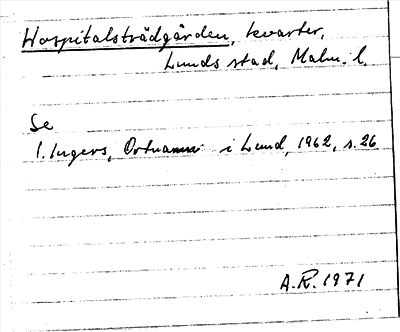 Hospitalsträdgården, kvarter,
Lunds stad, Malm. l.
Se
I. Ingers, Ortnamn i Lund, 1962, s. 26
A.R. 1971